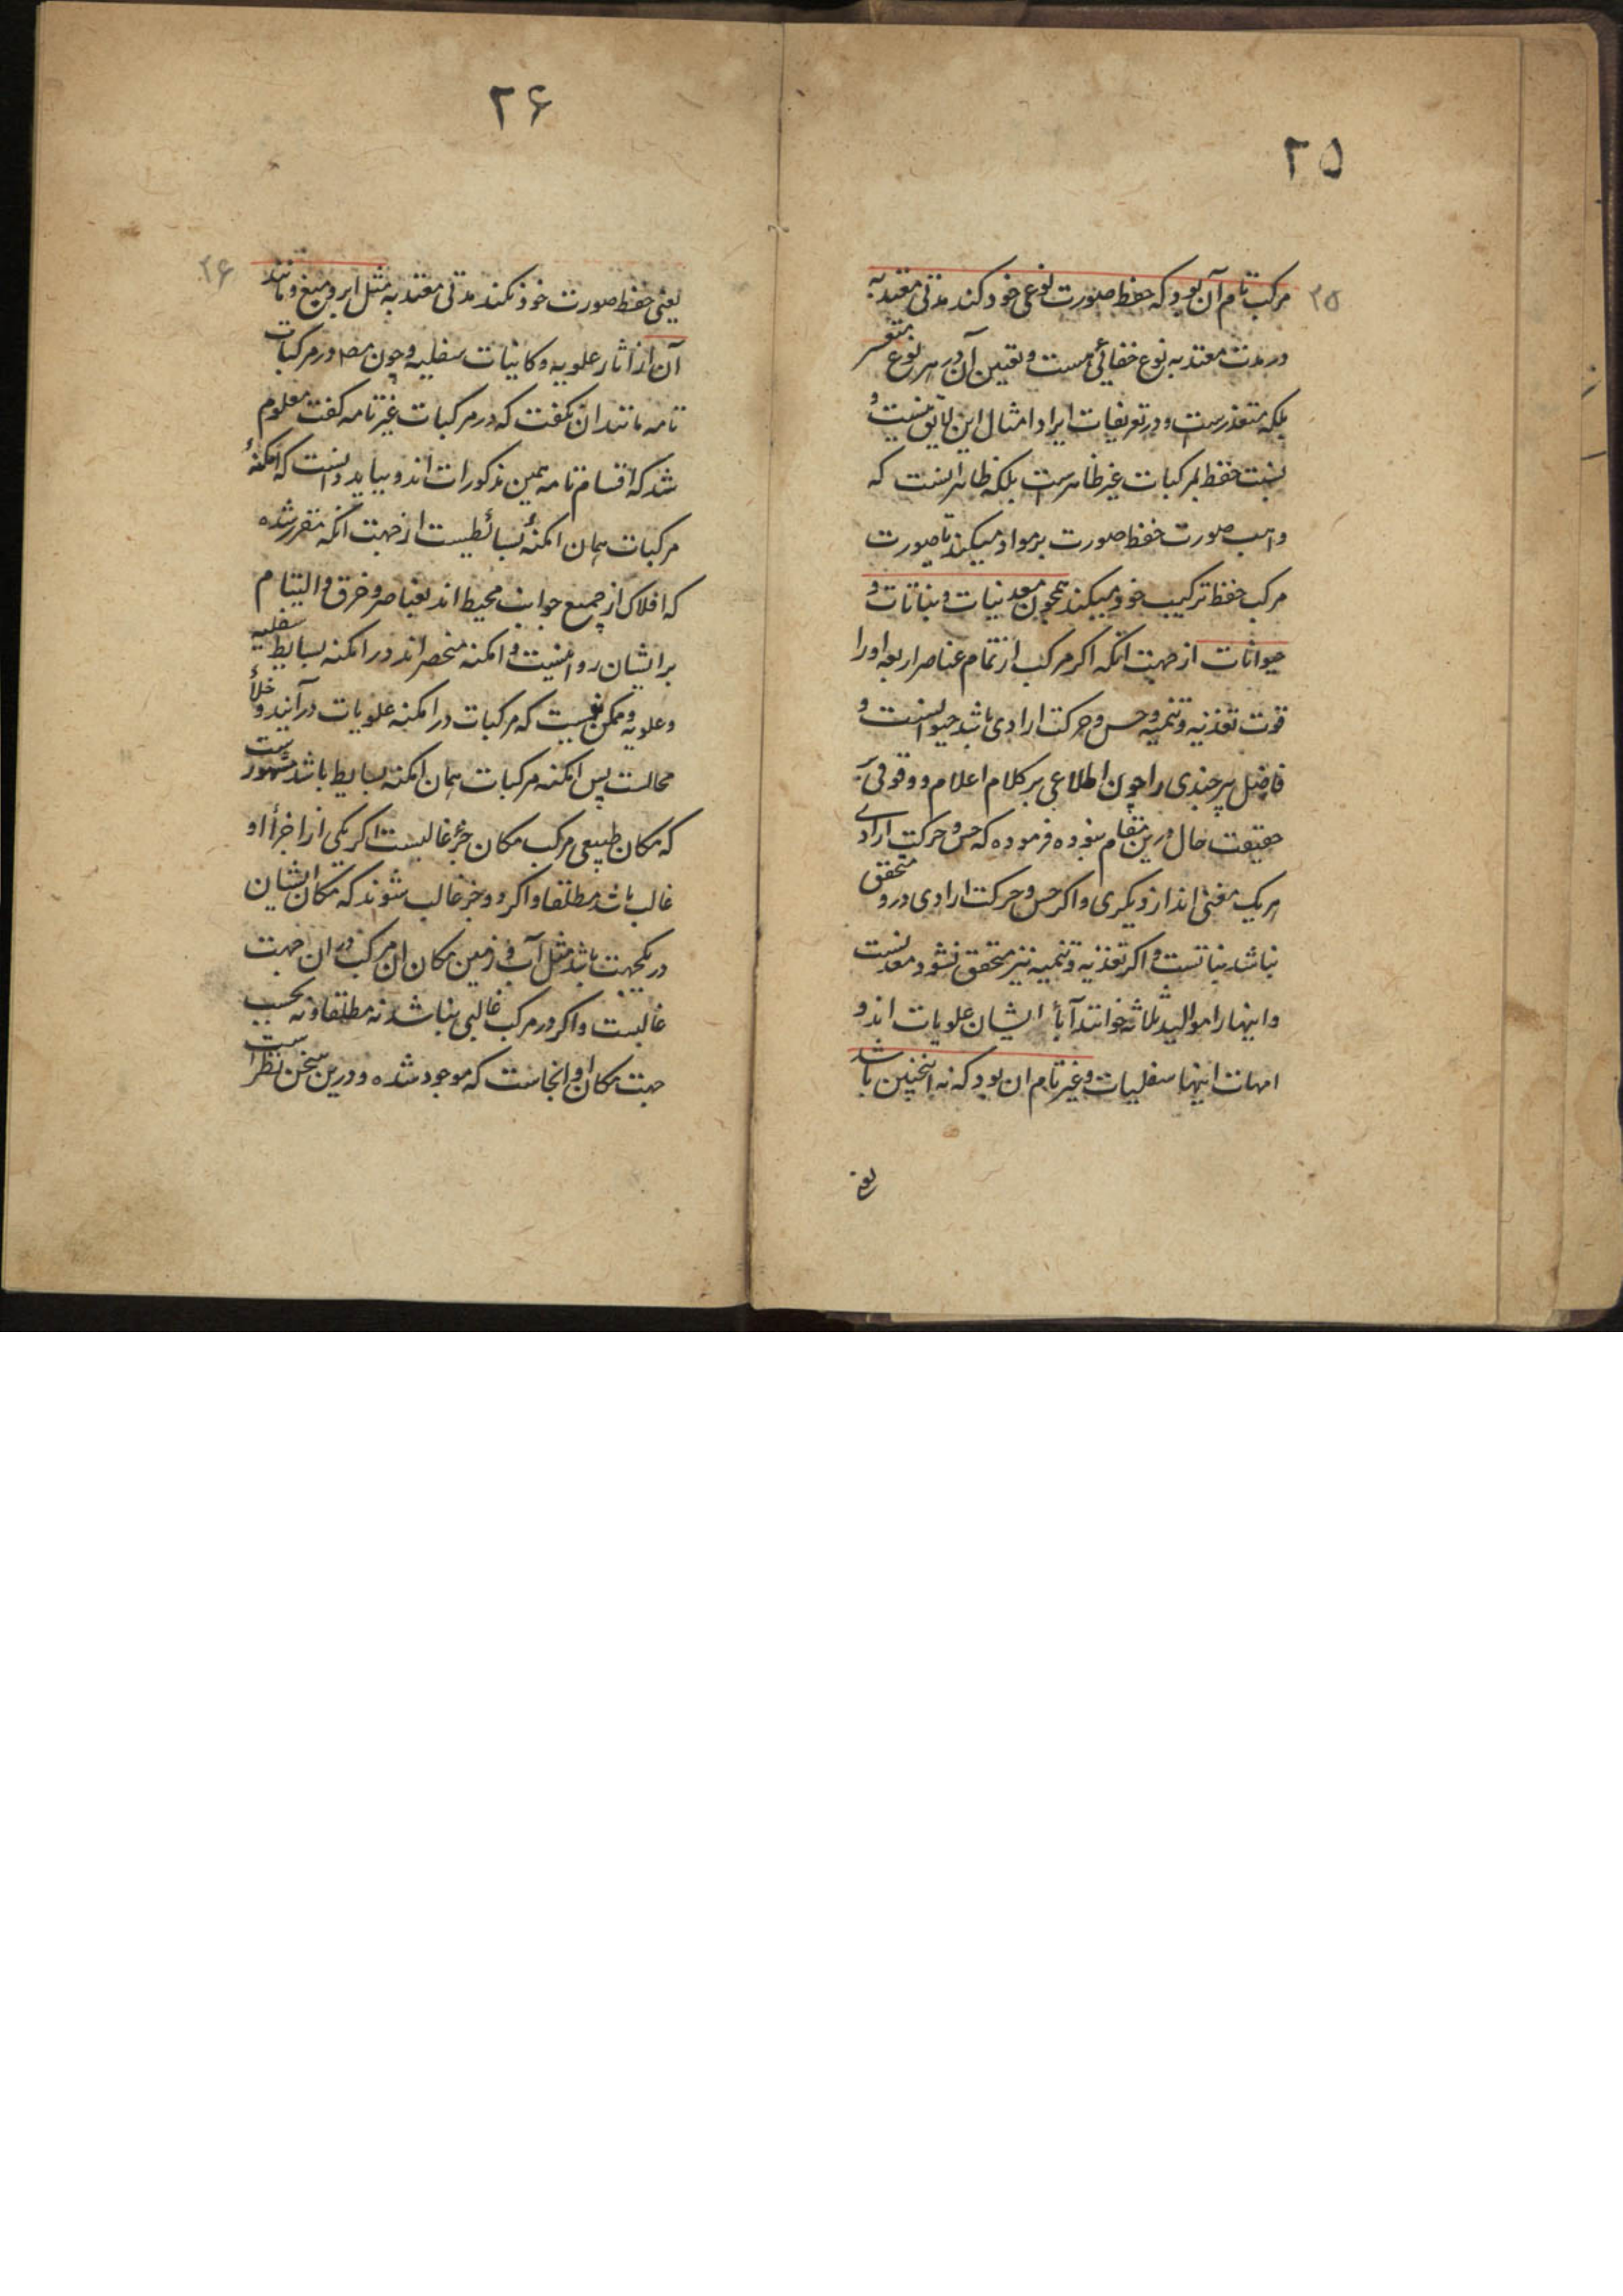 ۲۵
۲۵
مرکب تام آن بود که حفظ صورت نوعی خود کند مدتی معتد به
در مدت معتد به نوع خفائی هست و تعیین آن در هر نوع متعسر
بلکه متعذرست و در تعریفات ایراد امثال این لایق نیست و
نسبت حفظ بمرکبات غیر ظاهرست بلکه ظاهر انست که
واهب صورت حفظ صورت بر مواد میکند تا صورت
مرکب حفظ ترکیب خود میکند همچون معدنیات و نباتات و
حیوانات از جهت انکه اکر مرکب از تمام عناصر اربعه او را
قوت تغذیه و تنمیه و حس و حرکت ارادی باشد حیوانست و
فاضل برجندی را چون اطلاعی بر کلام اعلام و وقوفی بر
حقیقت حال درین مقام نبوده فرموده که حس و حرکت ارادی
هریک مغنی اند از دیکری و اکر حس و حرکت ارادی درو متحقق
نباشد نباتست و اکر تغذیه و تنمیه نیز متحقق نشود معدنست
و اینها را موالید ثلاثه خوانند آباء ایشان علویات اند و
امهات اینها سفلیات و غیر تام ان بود که نه اینچنین باشد
یعنی
۲۶
۲۶
یعنی حفظ صورت خود نکند مدتی معتد به مثل ابر و میغ و مانند
آن از آثار علویه و کاینات سفلیه و چون مصـ در مرکبات
تامه مانند ان نکفت که در مرکبات غیر تامه کفت معلوم
شد که اقسام تامه همین مذکورات اند و بباید دانست که امکنهٔ
مرکبات همان امکنهٔ بسائطیست از جهت انکه مقرر شده
که افلاک از جمیع جوانب محیط اند بعناصر و خرق و التیام
بر ایشان روا نیست و امکنه منحصر اند در امکنه بسایط سفلیه
و علویه و ممکن نیست که مرکبات در امکنه علویات در آیند و خلأ
محالست پس امکنه مرکبات همان امکنه بسایط باشد مشهورست
که مکان طبیعی مرکب مکان جزء غالبست اکر یکی از اجزاء او
غالب باشد مطلقا و اکر دو جزء غالب شوند که مکان ایشان
در یکجهت باشد مثل آب و زمین مکان ان مرکب در ان جهت
غالبست و اکر در مرکب غالبی نباشد نه مطلقا و نه بحسب
جهت مکان او انجاست که موجود شده و درین سخن نظر است